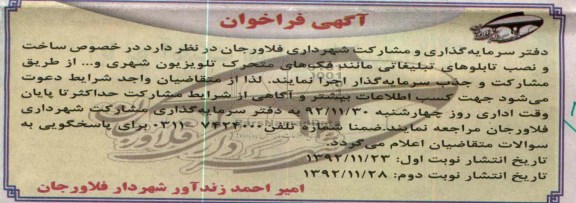 آگهی فراخوان
دفتر سرمایه‌گذاری و مشارکت شهرداری فلاورجان در نظر دارد در خصوص ساخت
و نصب تابلوهای تبلیغاتی مانند فک‌های متحرک تلویزیون شهری و... از طریق
مشارکت و جذب سرمایه‌گذار اجرا نمایند. لذا از متقاضیان واجد شرایط دعوت
می‌شود جهت کسب اطلاعات بیشتر و آگاهی از شرایط مشارکت حداکثر تا پایان
وقت اداری روز چهارشنبه ۹۲/۱۱/۳۰ به دفتر سرمایه‌گذاری مشارکت شهرداری
فلاورجان مراجعه نمایند.ضمنا شماره تلفن ۷۴۲۴۰۰۰-۰۳۱۱ برای پاسخگویی به
سوالات متقاضیان اعلام می‌گردد.
تاریخ انتشار نوبت اول: ۱۳۹۲/۱۱/۲۳
تاریخ انتشار نوبت دوم: ۱۳۹۲/۱۱/۲۸
امیر احمد زندآور شهردار فلاورجان